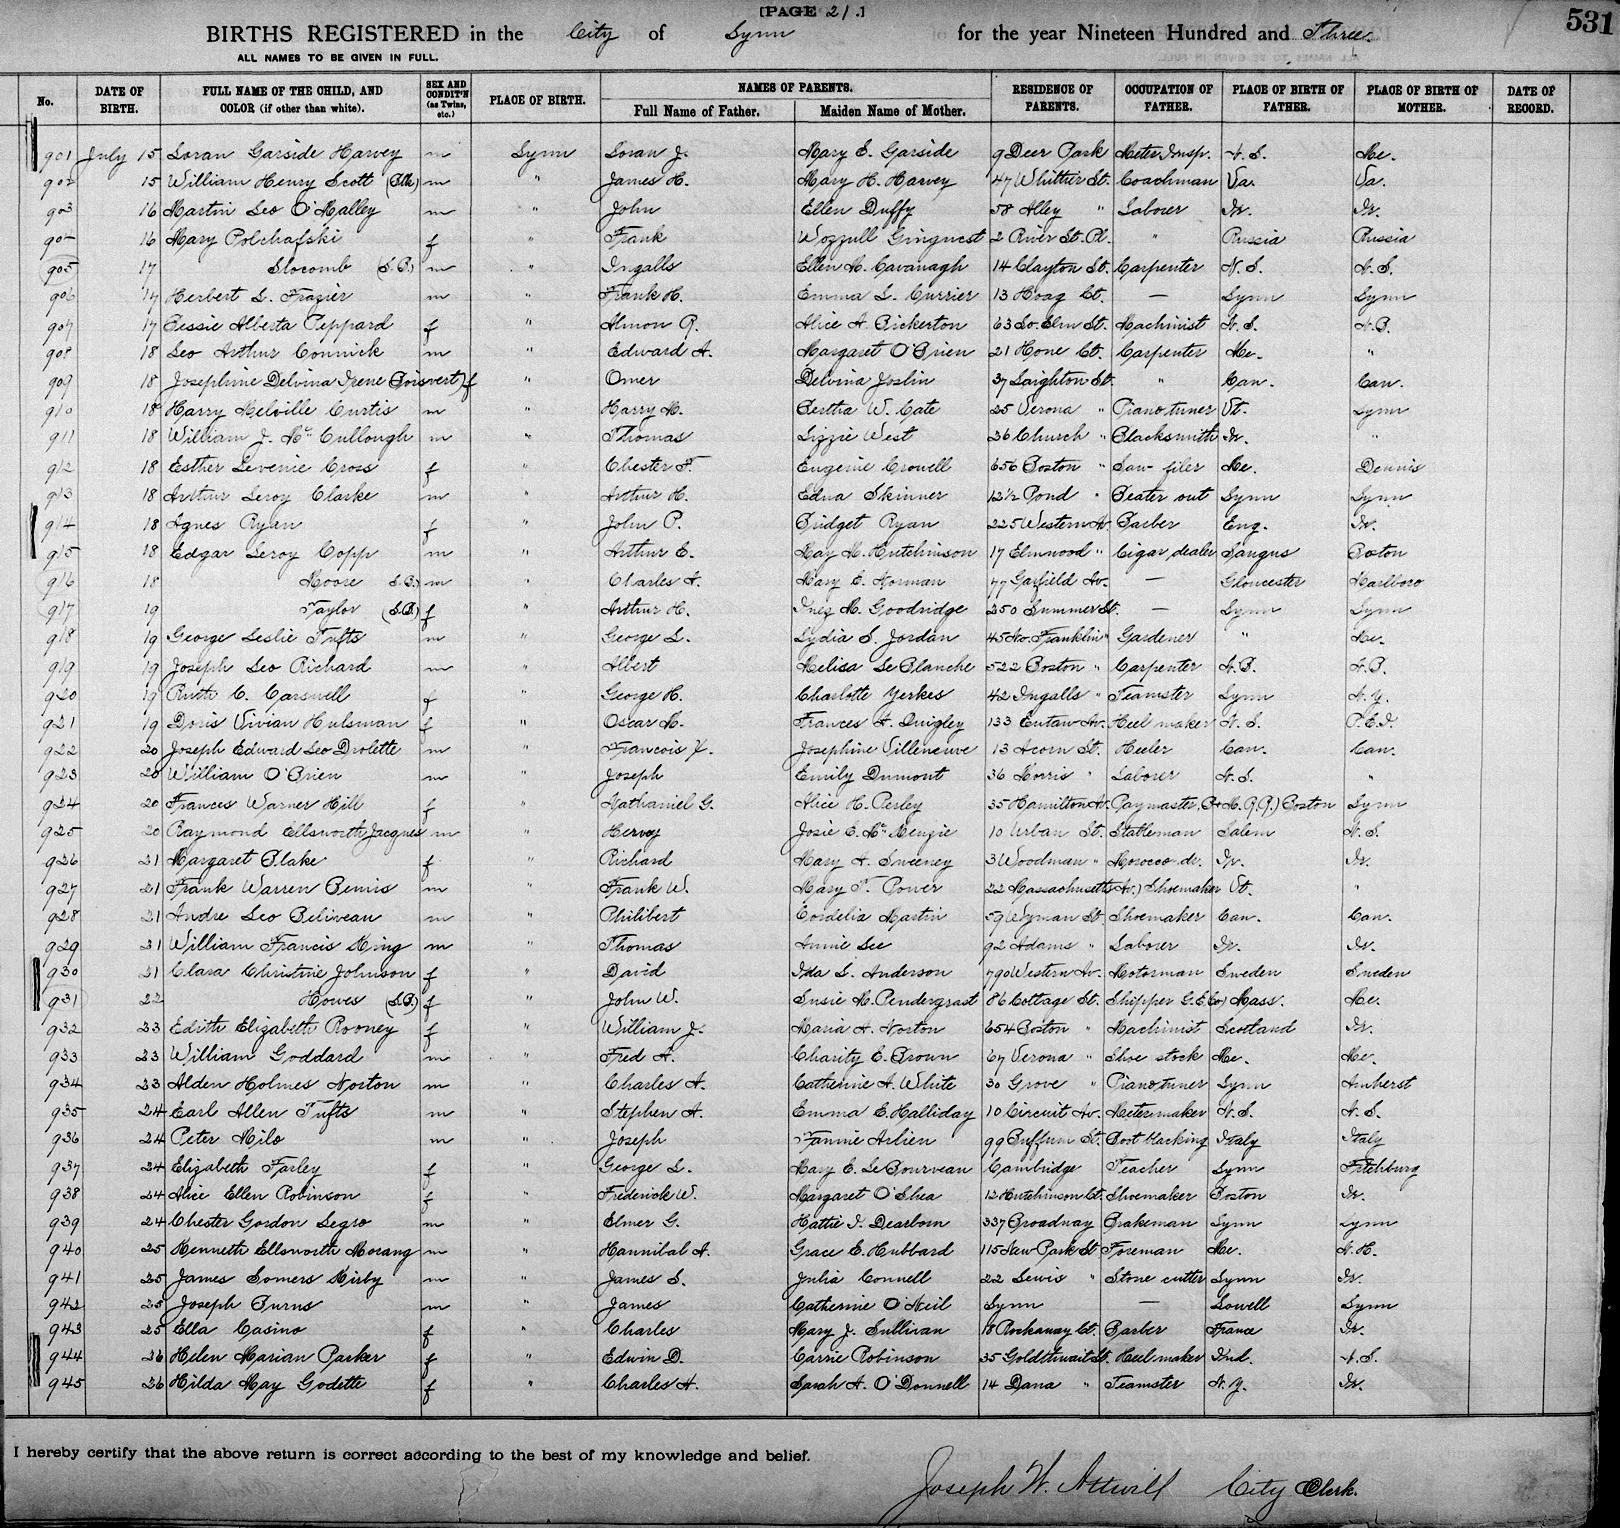 [PAGE 21.]
531
BIRTHS REGISTERED in the City of Lynn for the year Nineteen Hundred and Three.
ALL NAMES TO BE GIVEN IN FULL.
No. DATE OF BIRTH. FULL NAME OF THE CHILD, AND COLOR (if other than white). SEX AND CONDIT'N (as Twins, etc.) PLACE OF BIRTH. NAMES OF PARENTS. Full Name of Father. Maiden Name of Mother. RESIDENCE OF PARENTS. OCCUPATION OF FATHER. PLACE OF BIRTH OF FATHER. PLACE OF BIRTH OF MOTHER. DATE OF RECORD.
901 July 15 Loran Garside Harvey m Lynn Loran J. Mary E. Garside 9 Deer Park Meter Insp. N.S. Me.
902 15 William Henry Scott (Blk) m " James H. Mary H. Harvey 47 Whittier St. Coachman Va. Va.
903 16 Martin Leo O'Malley m " John Ellen Duffy 58 Alley " Laborer Ir. Ir.
904 16 Mary Polchafski f " Frank 2 River St. Pl. " Russia Russia
905 17 Slocomb (S.B.) m " Ingalls Ellen M. Cavanagh 14 Clayton St. Carpenter N.S. N.S.
906 17 Herbert L. Frazier m " Frank H. Emma L. Currier 13 Hoag Ct. — Lynn Lynn
907 17 Bessie Alberta Peppard f " Almon R. Alice A. Bickerton 63 So. Elm St. Machinist N.S. N.B.
908 18 Leo Arthur Connick m " Edward A. Margaret O'Brien 21 Hone Ct. Carpenter Me. "
909 18 Josephine Delvina Irene Boisvert) f " Omer Delvina Joslin 37 Laighton St. " Can. Can.
910 18 Harry Melville Curtis m " Harry M. Bertha W. Cate 25 Verona " Piano tuner Vt. Lynn
911 18 William J. McCullough m " Thomas Lizzie West 36 Church " Blacksmith Ir. "
912 18 Esther Levenie Cross f " Chester F. Eugenie Crowell 656 Boston " Saw filer Me. Dennis
913 18 Arthur Leroy Clarke m " Arthur H. Edna Skinner 12½ Pond " Beater out Lynn Lynn
914 18 Agnes Ryan f " John P. Bridget Ryan 225 Western Av. Barber Eng. Ir.
915 18 Edgar Leroy Copp m " Arthur E. May M. Hutchinson 17 Elmwood " Cigar dealer Saugus Boston
916 18 Moore S.B.) m " Charles A. Mary E. Norman 77 Garfield Av. — Gloucester Marlboro
917 19 Taylor (S.B.) f " Arthur H. Inez M. Goodridge 250 Summer St. — Lynn Lynn
918 19 George Leslie Tufts m " George L. Lydia S. Jordan 45 No. Franklin " Gardener " Me.
919 19 Joseph Leo Richard m " Albert Melisa Le Blanche 522 Boston " Carpenter N.B. N.B.
920 19 Ruth C. Carswell f " George H. Charlotte Yerkes 42 Ingalls " Teamster Lynn N.Y.
921 19 Doris Vivian Hulsman f " Oscar M. Frances A. Quigley 133 Eutaw Av. Heel maker N.S. P.E.I.
922 20 Joseph Edward Leo Drolette m " Francois X. Josephine Villeneuve 13 Acorn St. Heeler Can. Can.
923 20 William O'Brien m " Joseph Emily Dumont 36 Morris " Laborer N.S. "
924 20 Frances Warner Hill f " Nathaniel G. Alice H. Perley 35 Hamilton Av. Paymaster, B+M. R.R.) Boston Lynn
925 20 Raymond Ellsworth Jacques m " Hervey Josie E. McKenzie 10 Urban St. Stableman Salem N.S.
926 21 Margaret Blake f " Richard Mary A. Sweeney 3 Woodman " Morocco dr. Ir. Ir.
927 21 Frank Warren Bemis m " Frank W. Mary T. Power 22 Massachusetts Av.) Shoemaker Vt. "
928 21 Andre Leo Beliveau m " Philibert Cordelia Martin 59 Wyman St. Shoemaker Can. Can.
929 21 William Francis King m " Thomas Annie Lee 92 Adams " Laborer Ir. Ir.
930 21 Clara Christine Johnson f " David Ida L. Anderson 790 Western Av. Motorman Sweden Sweden
931 22 Howes (S.B.) f " John W. Susie M. Pendergrast 86 Cottage St. Shipper G.E.Co) Mass. Me.
932 23 Edith Elizabeth Rooney f " William J. Maria A. Norton 654 Boston " Machinist Scotland Ir.
933 23 William Goddard m " Fred A. Charity E. Brown 67 Verona " Shoe stock Me. Me.
934 23 Alden Holmes Norton m " Charles A. Catherine A. White 30 Grove " Piano tuner Lynn Amherst
935 24 Earl Allen Tufts m " Stephen A. Emma E. Halliday 10 Circuit Av. Meter maker N.S. N.S.
936 24 Peter Milo m " Joseph Fannie Arlien 99 Buffum St. Boot blacking Italy Italy
937 24 Elizabeth Farley f " George L. Mary E. Le Bourveau Cambridge Teacher Lynn Fitchburg
938 24 Alice Ellen Robinson f " Frederick W. Margaret O'Shea 12 Hutchinson Ct. Shoemaker Boston Ir.
939 24 Chester Gordon Segro m " Elmer G. Hattie I. Dearborn 337 Broadway Brakeman Lynn Lynn
940 25 Kenneth Ellsworth Morang m " Hannibal A. Grace E. Hubbard 115 New Park St Foreman Me. N.H.
941 25 James Somers Kirby m " James S. Julia Connell 22 Lewis " Stone cutter Lynn Ir.
942 25 Joseph Burns m " James Catherine O'Neil Lynn — Lowell Lynn
943 25 Ella Casino f " Charles Mary J. Sullivan 18 Rockaway Ct. Barber France Ir.
944 26 Helen Marian Parker f " Edwin D. Carrie Robinson 35 Goldthwait St. Heel maker Ind. N.S.
945 26 Hilda May Godette f " Charles H. Sarah A. O'Donnell 14 Dana " Teamster N.Y. Ir.
I hereby certify that the above return is correct according to the best of my knowledge and belief.
Joseph W. Attwill City Clerk.